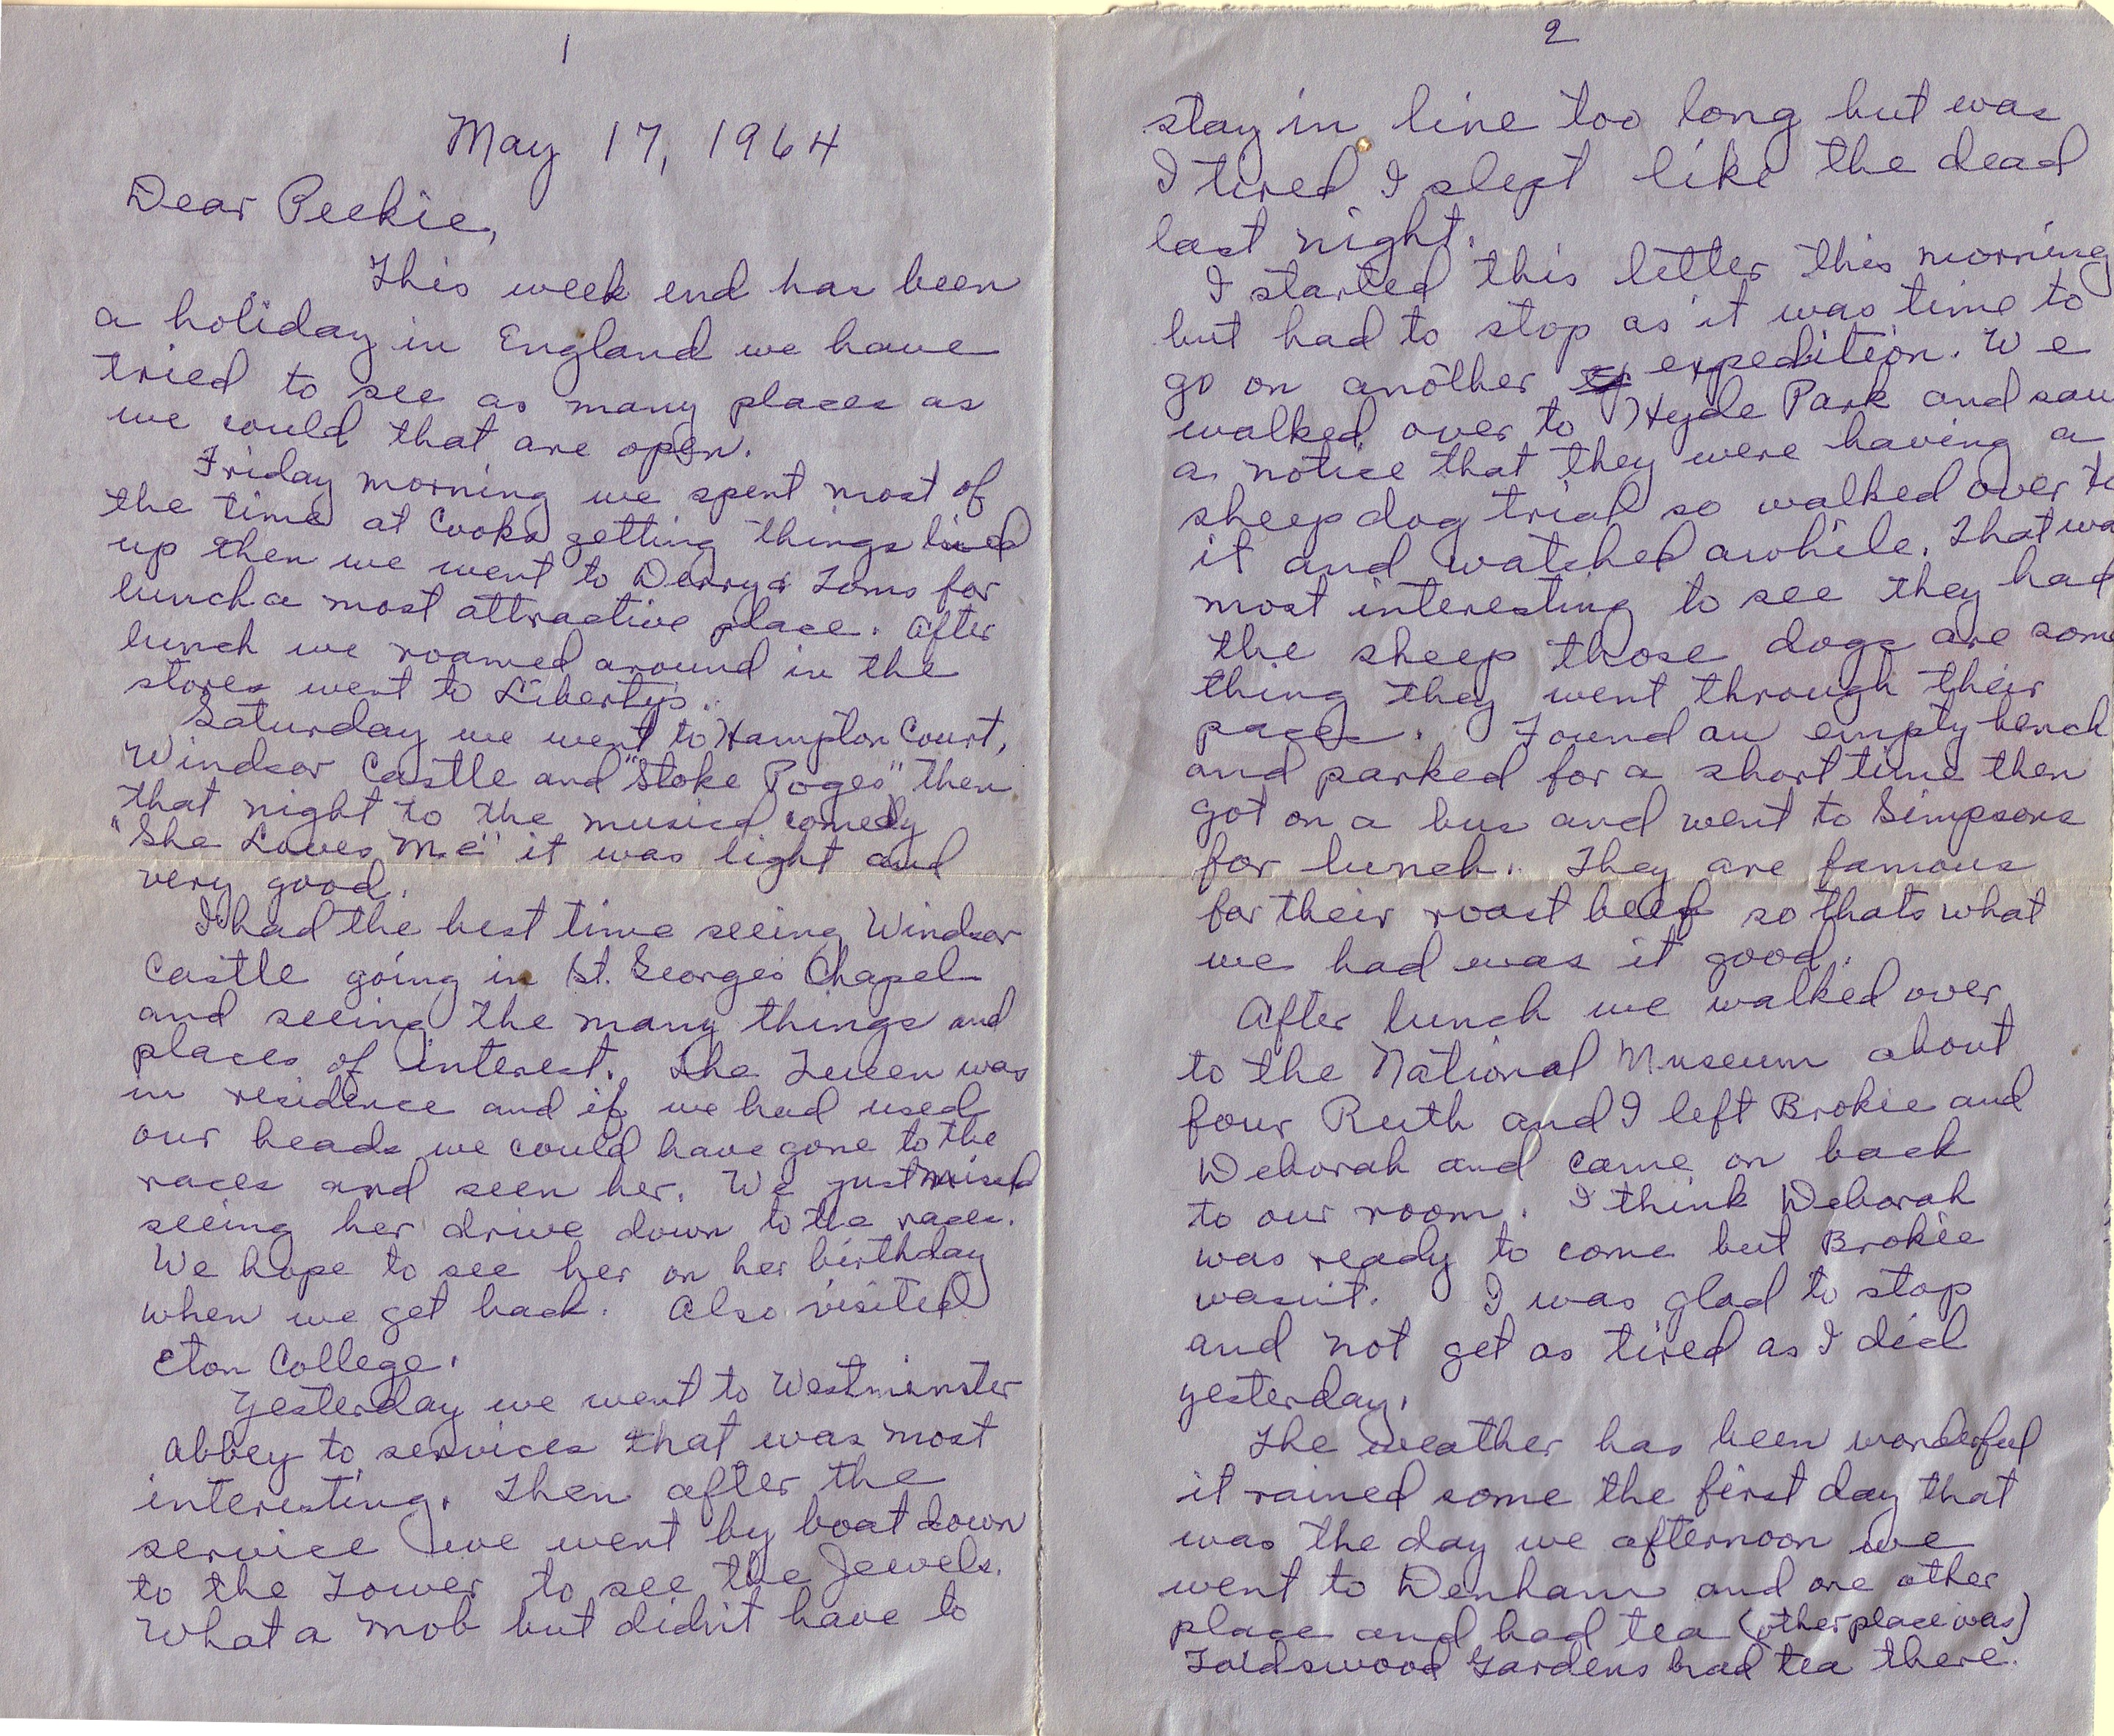 1
May 17, 1964
Dear Peekie,
This week end has been
a holiday in England we have
tried to see as many places as
we could that are open.
Friday morning we spent most of
the time at Cooks getting things lined
up then we went to Derry & Toms for
lunch a most attractive place. After
lunch we roamed around in the
stores went to Liberty's.
Saturday we went to Hampton Court,
Windsor Castle and "Stoke Poges" then
that night to the musical comedy
"She Loves Me" it was light and
very good.
I had the best time seeing Windsor
Castle going in St. Georges Chapel
and seeing the many things and
places of interest. The Queen was
in residence and if we had used
our heads we could have gone to the
races and seen her. We just missed
seeing her drive down to the races.
We hope to see her on her birthday
when we get back. Also visited
Eton College.
Yesterday we went to Westminster
Abbey to services that was most
interesting. Then after the
service we went by boat down
to the Tower to see the Jewels.
What a mob but didn't have to
2
stay in line too long but was
I tired I slept like the dead
last night.
I started this letter this morning
but had to stop as it was time to
go on another expedition. We
walked over to Hyde Park and saw
a notice that they were having a
sheep dog trial so walked over to
it and watched awhile. That wa
most interesting to see they had
the sheep those dogs are some
thing they went through their
paces. Found an empty bench
and parked for a short time then
got on a bus and went to Simpsons
for lunch. They are famous
for their roast beef so thats what
we had was it good.
After lunch we walked over
to the National Museum about
four Ruth and I left Brokie and
Deborah and came on back
to our room. I think Deborah
was ready to come but Brokie
wasn't. I was glad to stop
and not get as tired as I did
yesterday.
The weather has been wonderful
it rained some the first day that
was the day we afternoon we
went to Denham and one other
place and had tea (other place was)
Gardens had tea there.